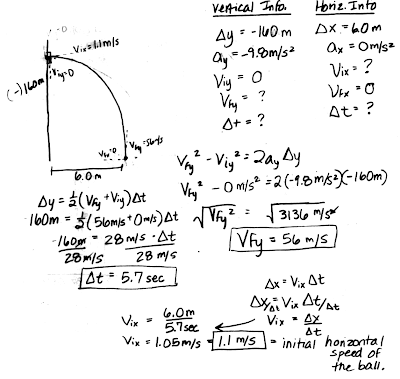 Vertical Info.
Δy = -160 m
ay = -9.8 m/s²
Viy = 0
Vfy = ?
Δt = ?
Horiz. Info
Δx = 6.0m
ax = 0m/s²
Vix = ?
Vfx = 0
Δt = ?
Vix = 1.1m/s
Viy=0
(-)160m
Vfx=0
Vfy=56m/s
6.0m
Vfy² - Viy² = 2ay Δy
Vfy² - 0 m/s² = 2(-9.8m/s²)(-160m)
√Vfy² = √3136 m/s
Vfy = 56 m/s
Δy = 1/2(Vfy + Viy)Δt
-160m = 1/2(56m/s + 0m/s)Δt
-160m = 28 m/s · Δt
28 m/s 28 m/s
Δt = 5.7 sec
Δx = Vix Δt
Δx/Δt = Vix Δt/Δt
Vix = Δx/Δt
Vix = 6.0m/5.7sec
Vix = 1.05m/s = 1.1 m/s = initial horizontal
speed of
the ball.